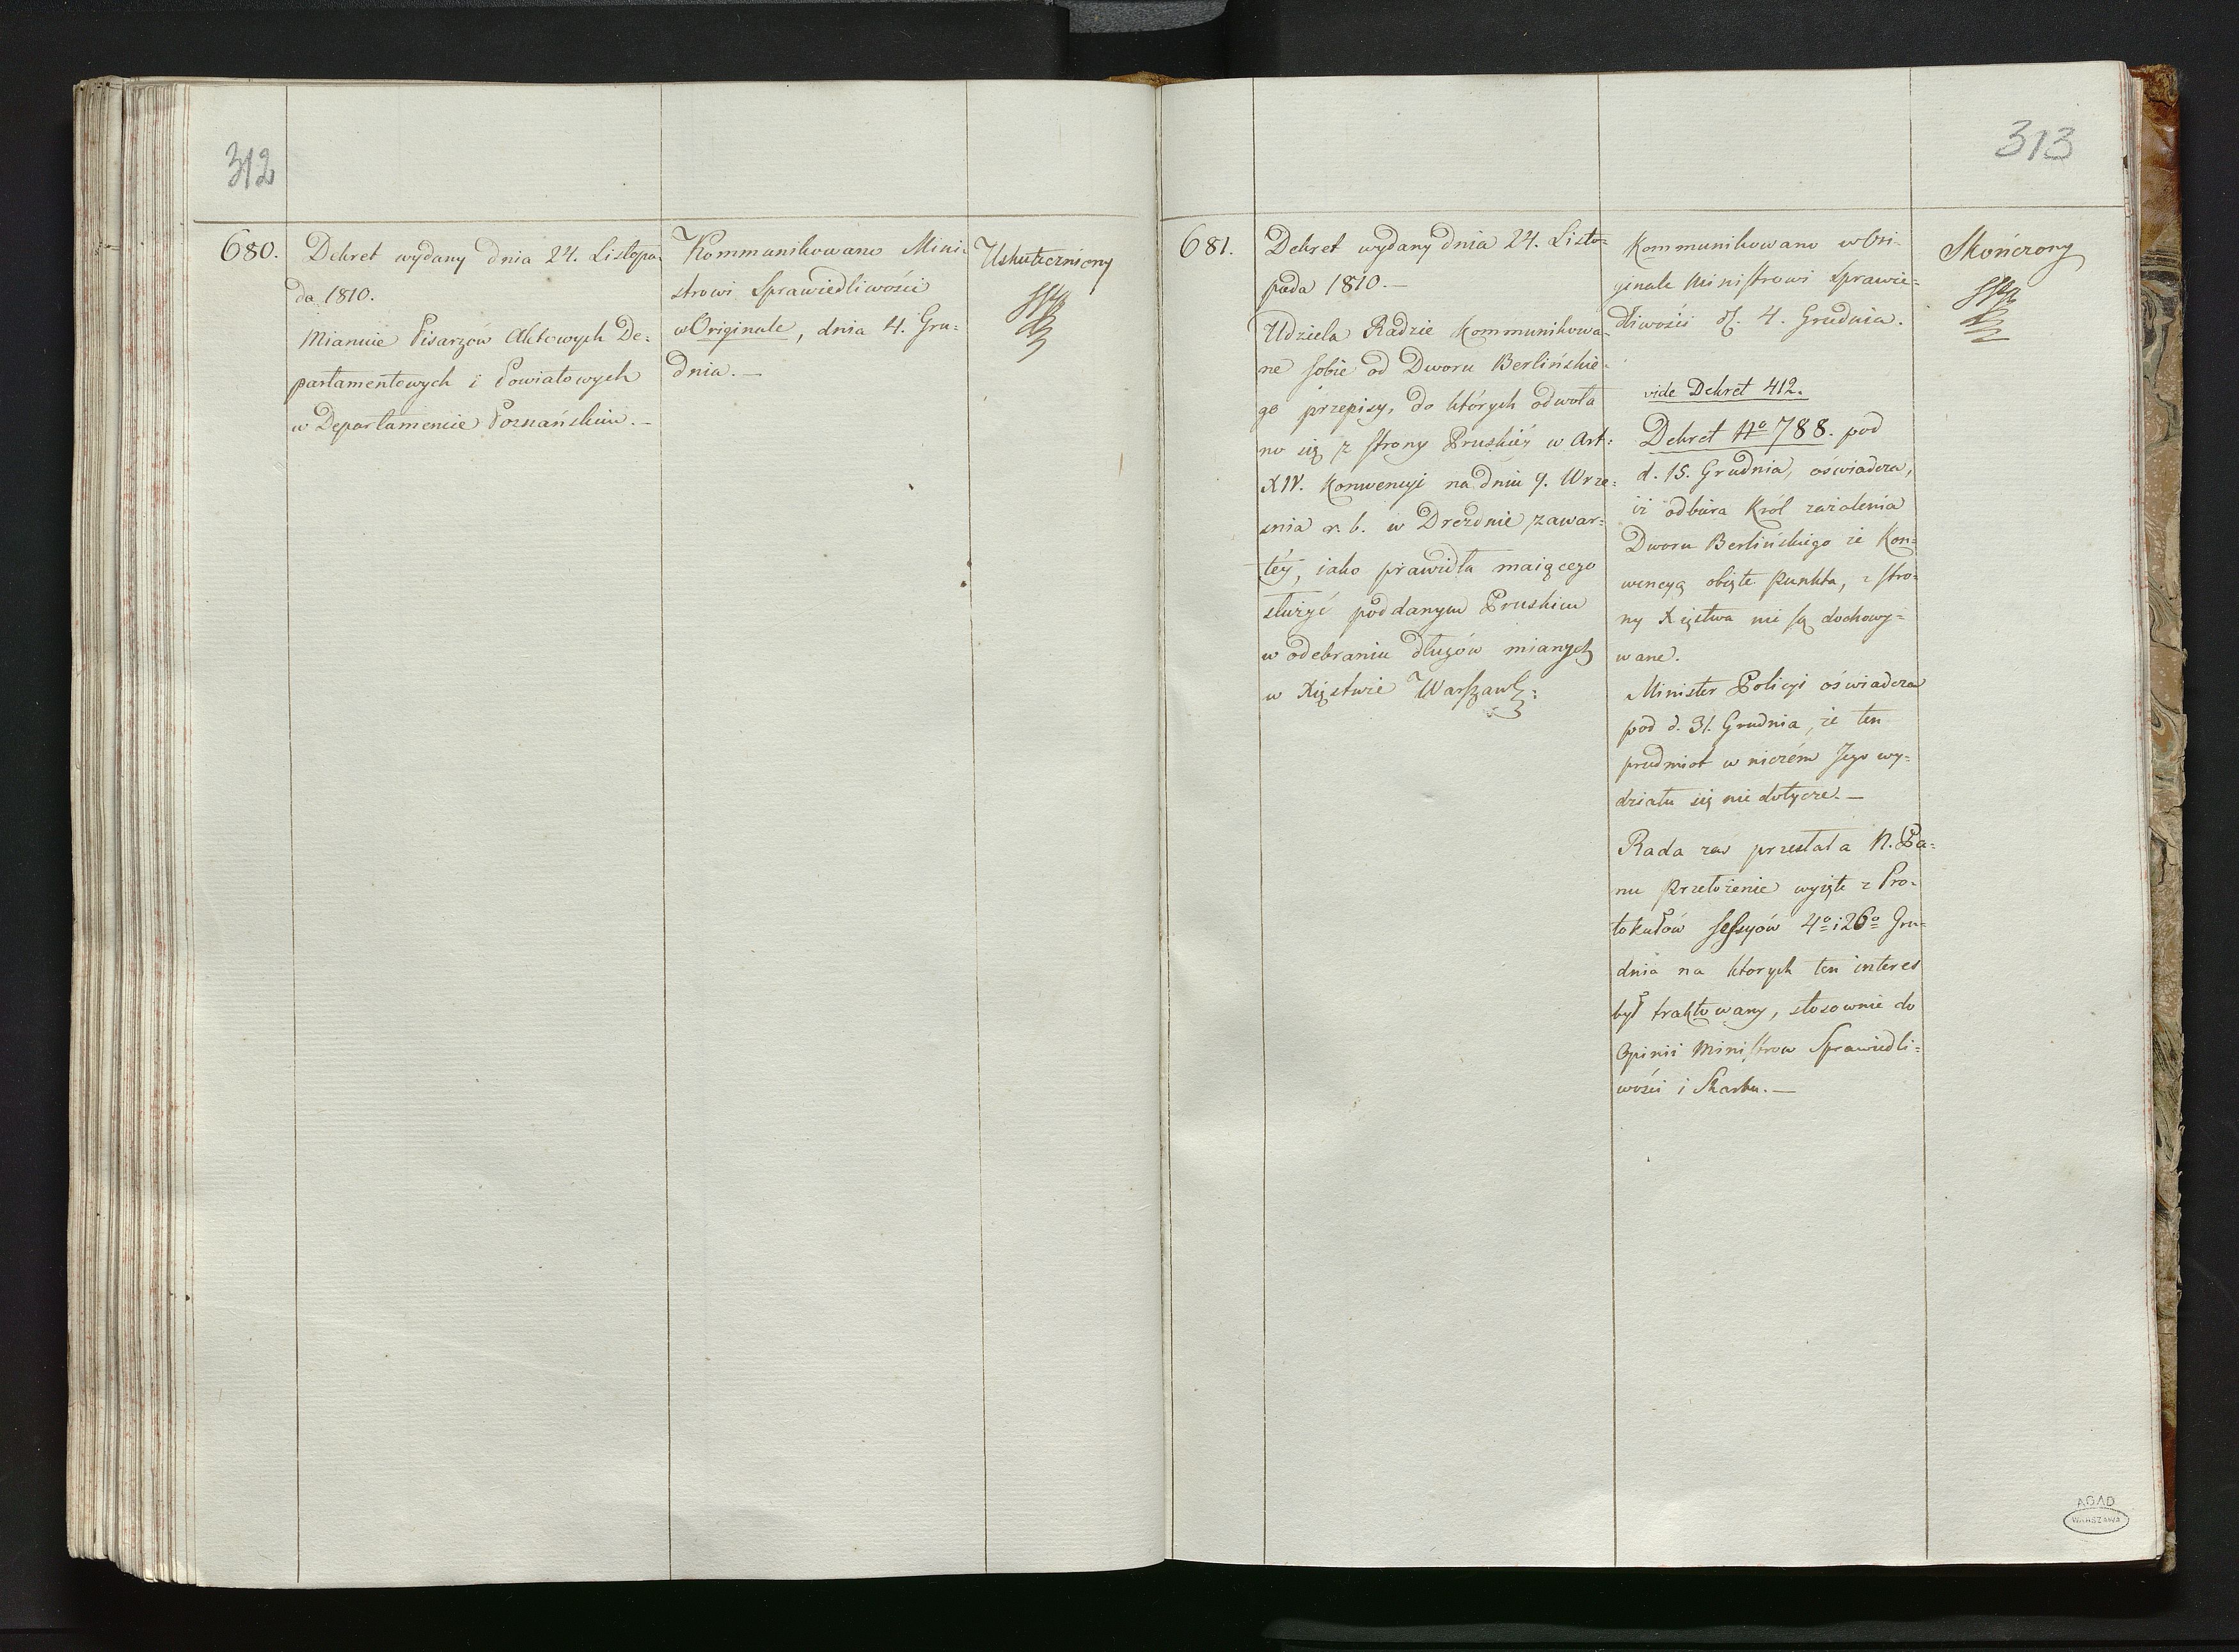 312
680.
Dekret wydany dnia 24. Listopa-
da 1810.
Mianuie Pisarzów Aktowych De:
partamentowych i Powiatowych
w Departamencie Poznańskim. —
Kommunikowano Mini:
strowi Sprawiedliwości
w Originale, dnia 4. Gru:
dnia. —
Uskuteczniony
313
681.
Dekret wydany dnia 24. Listo:
pada 1810. —
Udziela Radzie kommunikowa-
ne sobie od Dworu Berlińskie-
go przepisy, do których odwoła
no się z strony Pruskiéy w Art:
XIV. Konwencyi na dniu 9. Wrze:
śnia r. b. w Dreznie zawar:
téy, iako prawidła maiącego
służyć poddanym Pruskim
w odebraniu długów mianych
w Xięstwie Warszaw:
Kommunikowano w Ori-
ginale Ministrowi Sprawie=
dliwości d. 4. Grudnia.
vide Dekret 412.
Dekret No 788. pod
d. 15. Grudnia, oświadcza,
iż odbiera Król zażalenia
Dworu Berlińskiego że Kon=
wencyą obięte punkta, z stro-
ny Xięstwa nie są dochowy=
wane.
Minister Policyi oświadcza
pod d. 31. Grudnia, że ten
przedmiot w niczém Jego wy=
działu się nie dotycze. —
Rada zaś przesłała N. Pa=
nu przełożenie wyięte z Pro-
tokułów sessyów 4o i 26o Gru-
dnia na ktorych ten interes
był traktowany, stosownie do
Opinii Ministrow Sprawiedli=
wości i Skarbu. —
Skończony
AGAD
WARSZAWA